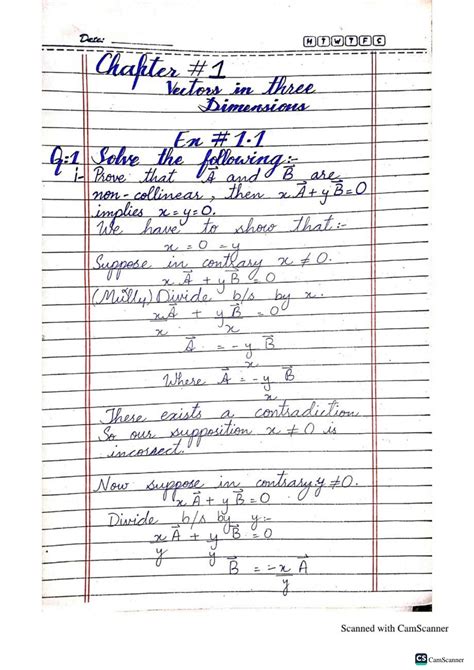 Date:
M T W T F S
Chapter #1
Vectors in three
Dimensions
Ex # 1.1
Q:1 Solve the following:-
i- Prove that A⃗ and B⃗ are
non-collinear, then xA⃗ + yB⃗ = 0
implies x = y = 0.
We have to show that:-
x = 0 = y
Suppose in contrary x ≠ 0.
xA⃗ + yB⃗ = 0
Divide b/s by x.
xA⃗/x + yB⃗/x = 0
A⃗ = -y/x B⃗
Where A⃗ = -y/x B⃗
There exists a contradiction
So our supposition x ≠ 0 is
incorrect.
Now suppose in contrary y ≠ 0.
xA⃗ + yB⃗ = 0
Divide b/s by y:-
xA⃗/y + yB⃗/y = 0
B⃗ = -x/y A⃗
Scanned with CamScanner
CS CamScanner